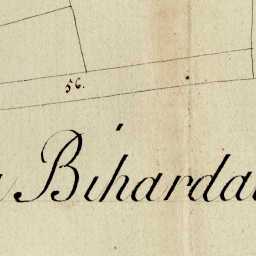 56.
Bihardal